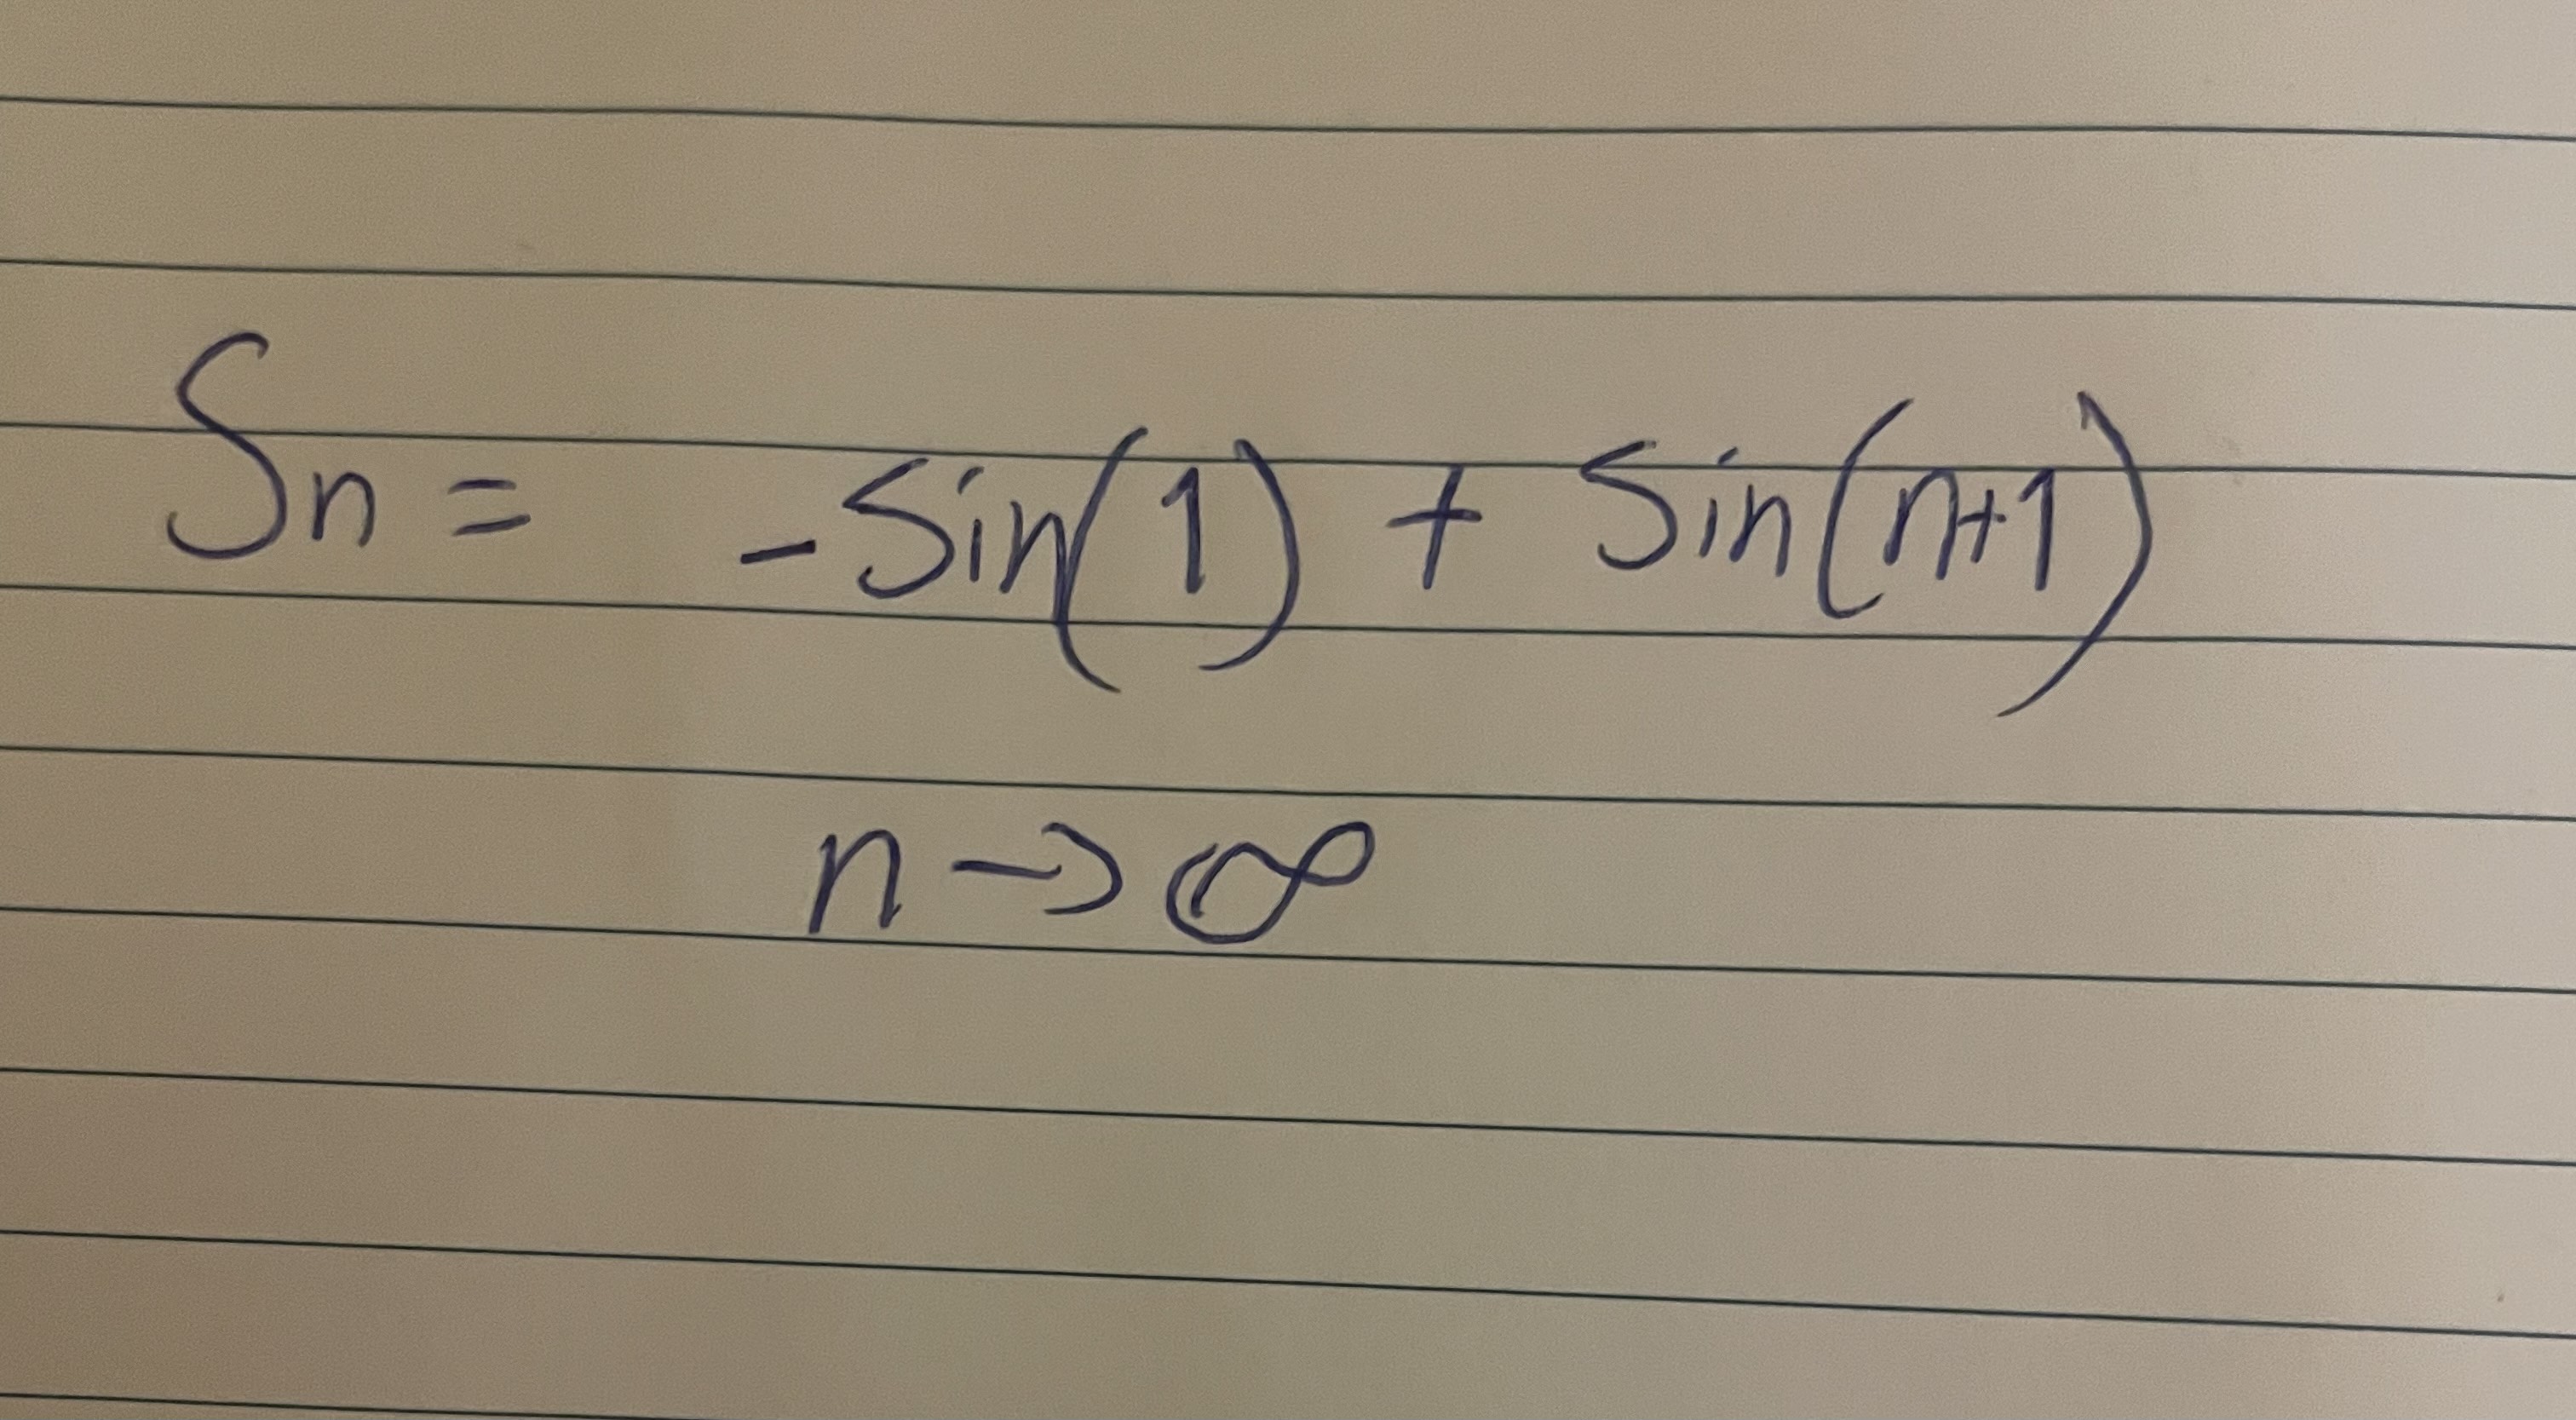 Sn = -Sin(1) + Sin(n+1)
n → ∞